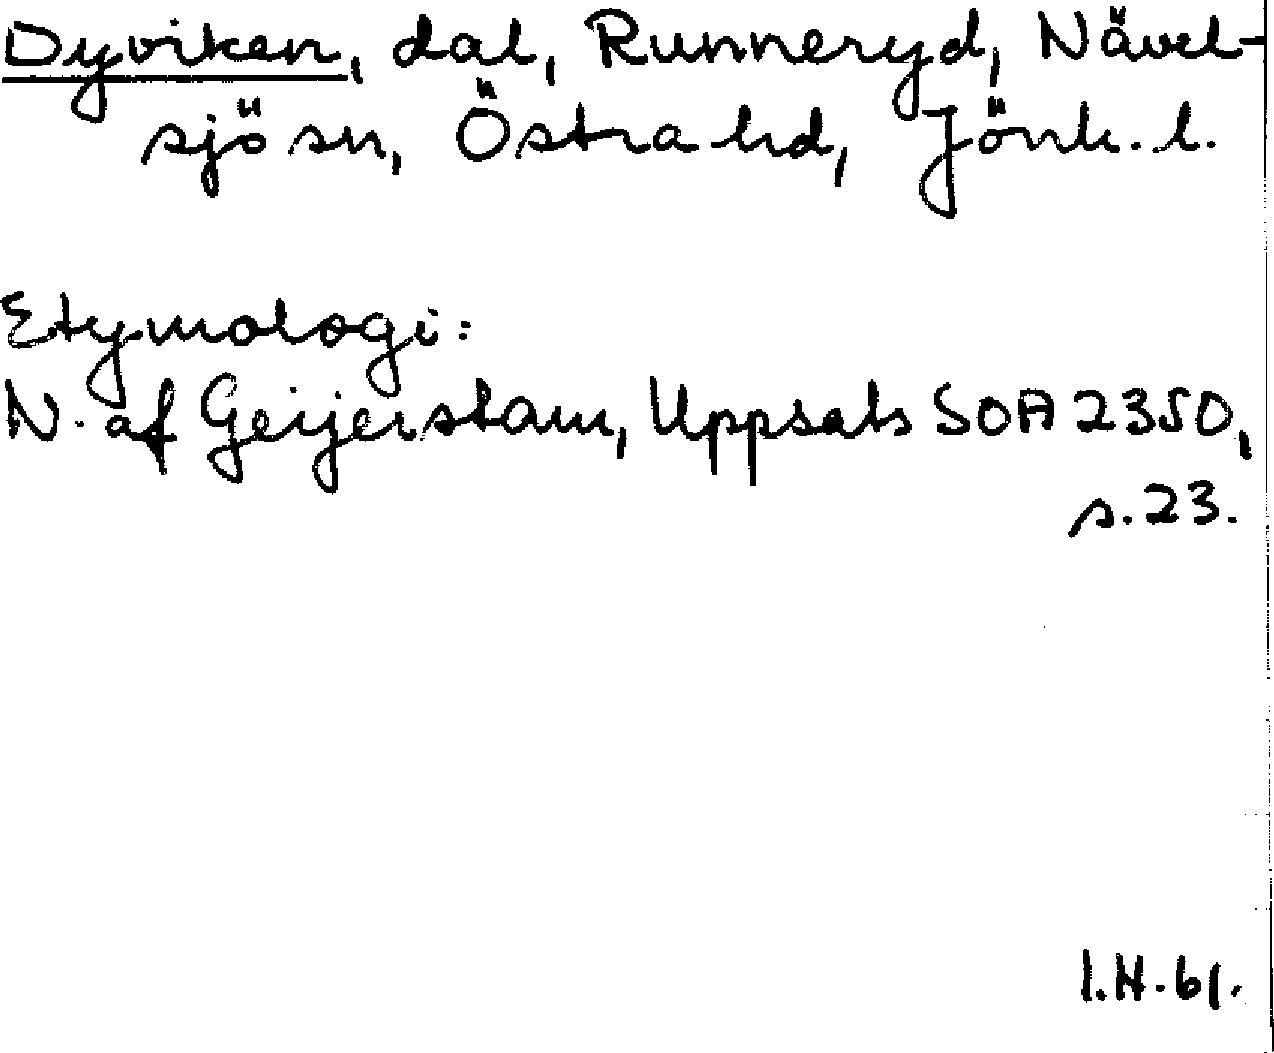 Dyviken, dal, Runneryd, Nävel-
sjö sn, Östra hd, Jönk. l.
Etymologi:
N. af Geijerstam, Uppsats SOA 2350,
s. 23.
I.H. 61.